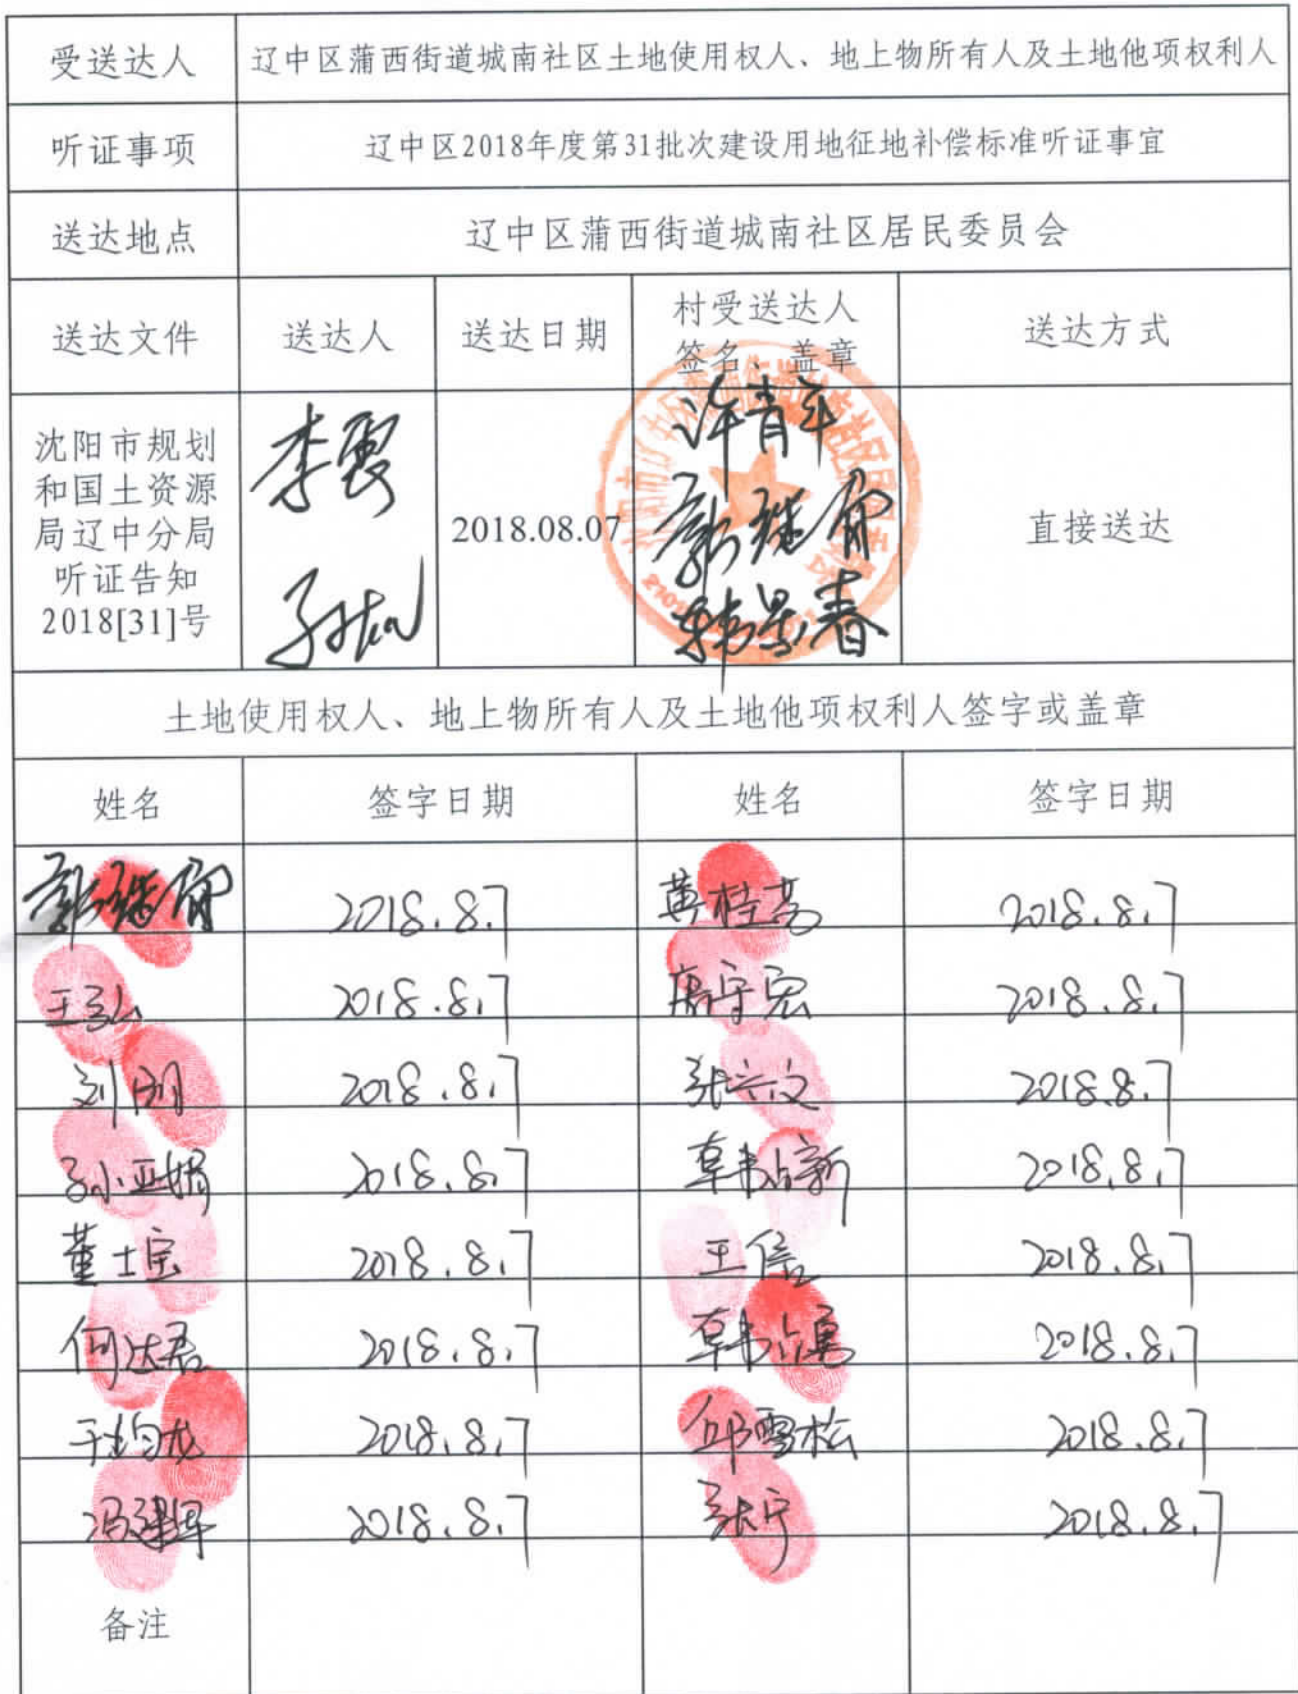 受送达人 辽中区蒲西街道城南社区土地使用权人、地上物所有人及土地他项权利人
听证事项 辽中区2018年度第31批次建设用地征地补偿标准听证事宜
送达地点 辽中区蒲西街道城南社区居民委员会
送达文件 送达人 送达日期 村受送达人 送达方式
签名、盖章
沈阳市规划
和国土资源
局辽中分局
听证告知
2018[31]号
李
2018.08.07
许青年
韩景春
直接送达
土地使用权人、地上物所有人及土地他项权利人签字或盖章
姓名 签字日期 姓名 签字日期
2018.8.7 黄桂芳 2018.8.7
2018.8.7 唐守宏 2018.8.7
刘刚 2018.8.7 张兴文 2018.8.7
孙亚娟 2018.8.7 韩占新 2018.8.7
董士宝 2018.8.7 王信 2018.8.7
何达君 2018.8.7 韩占 2018.8.7
2018.8.7 邱雪松 2018.8.7
冯建军 2018.8.7 张宁 2018.8.7
备注